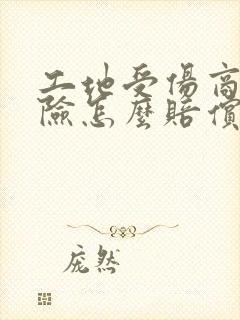 工地受傷商
險怎麼賠償
龐然